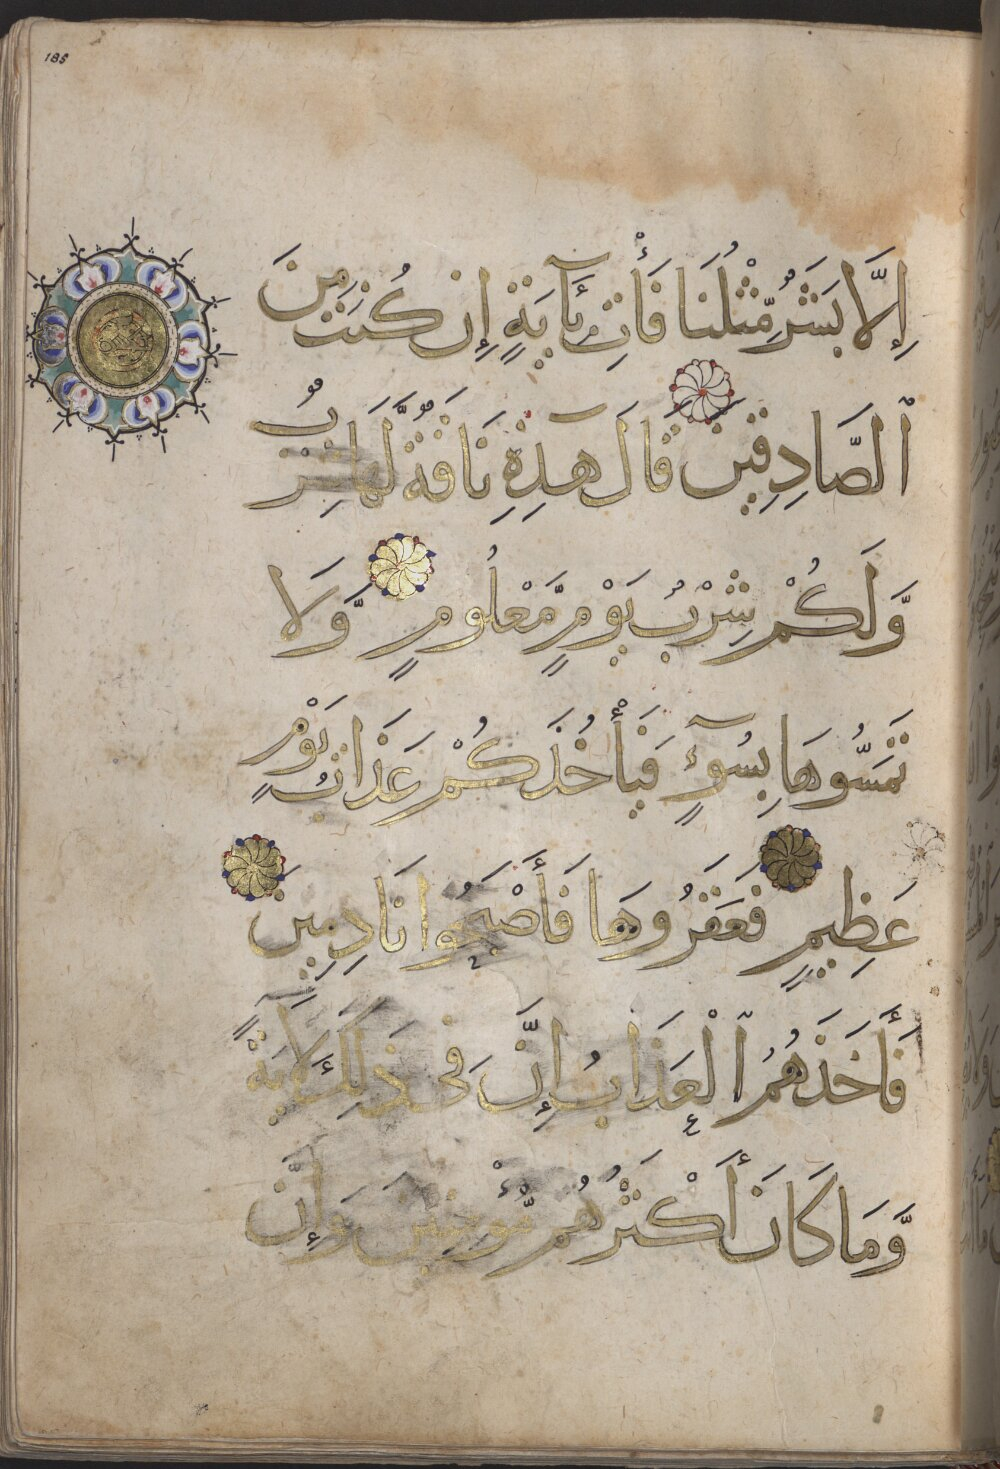 188
إِلَّا بَشَرٌ مِّثْلُنَا فَأْتِ بِآيَةٍ إِن كُنتَ مِنَ
ٱلصَّادِقِينَ قَالَ هَذِهِ نَاقَةٌ لَّهَا شِرْبٌ
وَّلَكُمْ شِرْبُ يَوْمٍ مَّعْلُومٍ وَّلَا
تَمَسُّوهَا بِسُوٓءٍ فَيَأْخُذَكُمْ عَذَابُ يَوْمٍ
عَظِيمٍ فَعَقَرُوهَا فَأَصْبَحُوا نَادِمِينَ
فَأَخَذَهُمُ ٱلْعَذَابُ إِنَّ فِي ذَلِكَ لَآيَةً
وَّمَا كَانَ أَكْثَرُهُم مُّؤْمِنِينَ وَإِنَّ